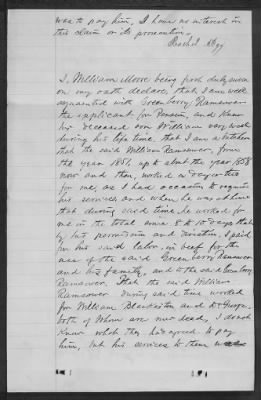 was to pay him, I have no interest in
this claim or its prosecution.
I, William Moore being first duly sworn
on my oath declare, that I am well
acquainted with Greenberry Ramsower
the applicant for Pension, and knew
his deceased son William very well
during his life time, that I am
that the said William Ramsower, from
the year 1851, up to about the year 1858
now and then, worked a day or two
for me, as I had occasion to require
his services and when he was at home
that during said time he worked for
me in the total some 8 to 10 days that
by his permission and direction, I paid
for his said labor, in beef for the
use of the said Greenberry Ramsower
and his family, and to the said Greenberry
Ramsower. That the said William
Ramsower during said time worked
for William Blackiston and
both of whom are now dead, I do not
know what they had agreed to pay
him, but his services to them was